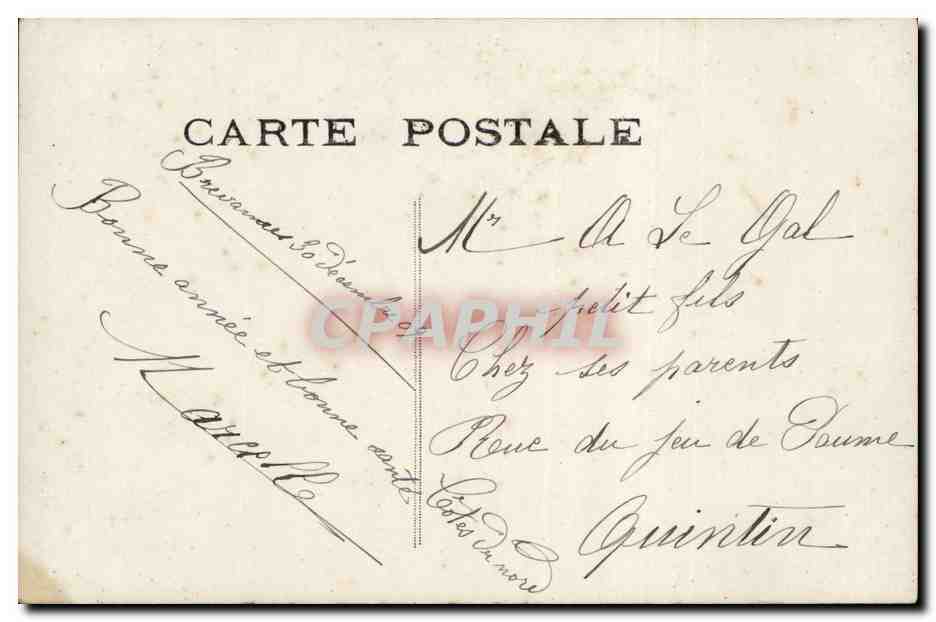 CARTE POSTALE
Brevannes 30 décembre
Bonne année et bonne santé
Marcelle
Mr A Le Gal
petit fils
Chez ses parents
Rue du jeu de Paume
Quintin
Côtes du nord
CPAPHIL